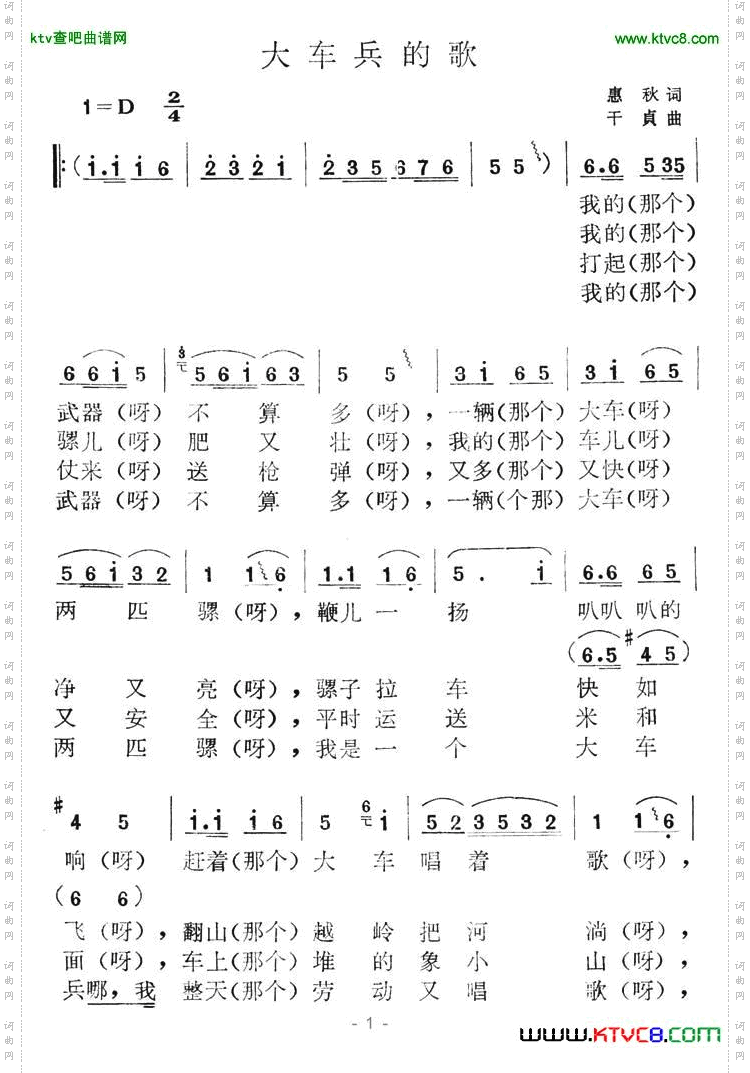 ktv查吧曲谱网
www.ktvc8.com
大车兵的歌
1=D 2/4
惠秋词
干貞曲
(i.i i6 | 2̇3̇ 2̇i | 2̇35 676 | 5 5) | 6.6 535 |
我的(那个)
我的(那个)
打起(那个)
我的(那个)
66i 5 | 56i 63 | 5 5 | 3i 65 | 3i 65 |
武器(呀)不算多(呀),一辆(那个)大车(呀)
骡儿(呀)肥又壮(呀),我的(那个)车儿(呀)
仗来(呀)送枪弹(呀),又多(那个)又快(呀)
武器(呀)不算多(呀),一辆(个那)大车(呀)
56i 32 | 1 1 6̣ | 1.1 1 6̣ | 5. i | 6.6 65 |
两匹骡(呀),鞭儿一扬叭叭叭的
(6.5 #45)
净又亮(呀),骡子拉车快如
又安全(呀),平时运送米和
两匹骡(呀),我是一个大车
#4 5 | i.i i6 | 5 i | 52 3532 | 1 1 6̣ |
响(呀)赶着(那个)大车唱着歌(呀),
(6 6)
飞(呀),翻山(那个)越岭把河淌(呀),
面(呀),车上(那个)堆的象小山(呀),
兵哪,我整天(那个)劳动又唱歌(呀),
- 1 -
www.KTVC8.com
词曲网